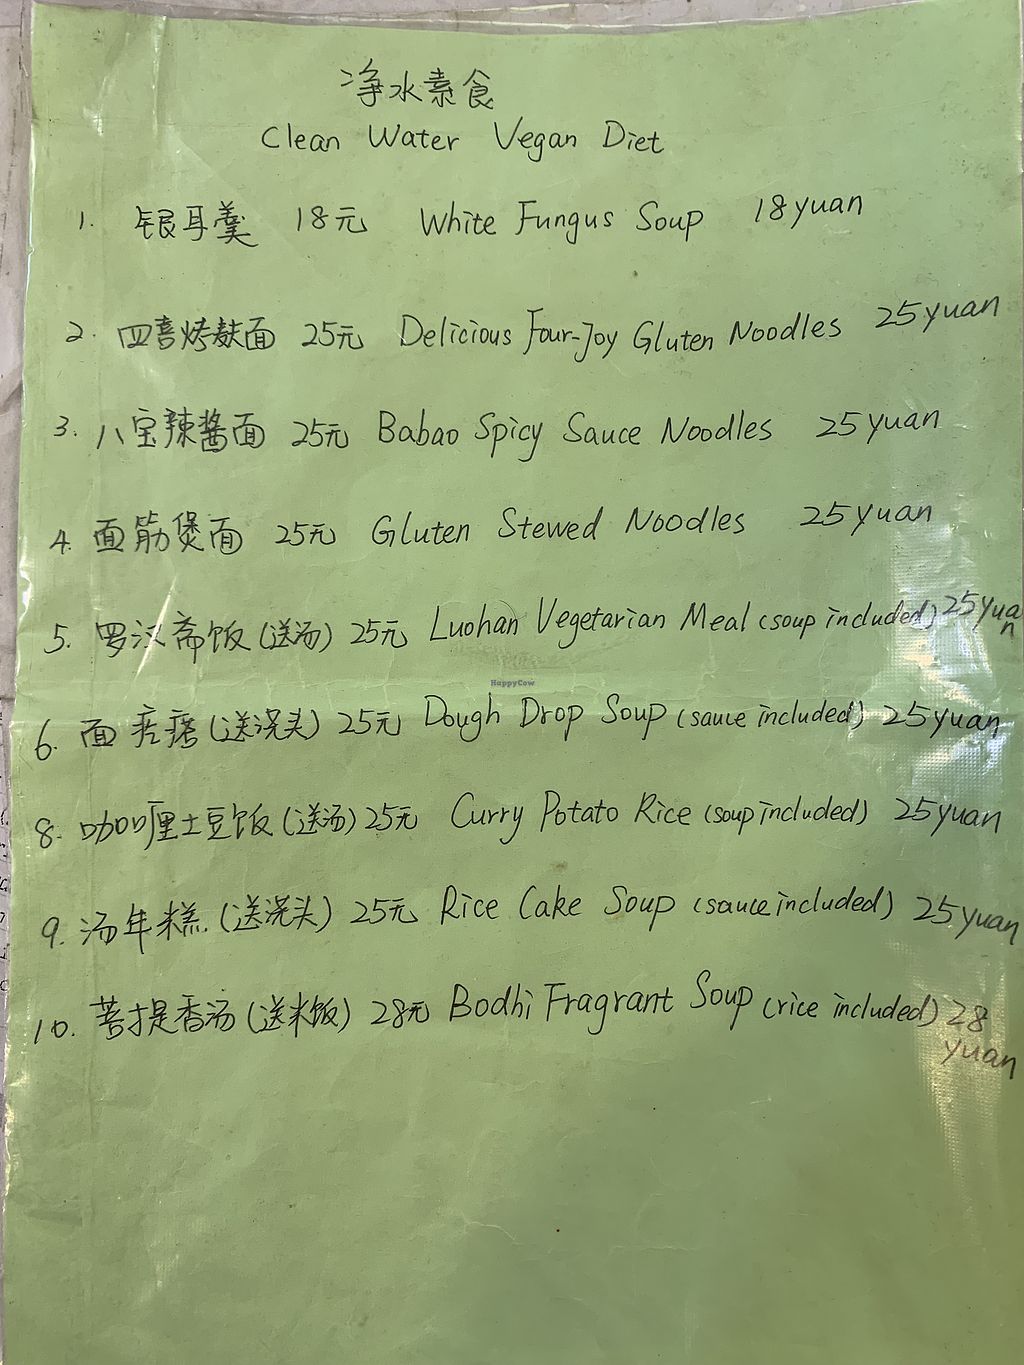 净水素食
Clean Water Vegan Diet
1. 银耳羹 18元 White Fungus Soup 18yuan
2. 四喜烤麸面 25元 Delicious Four-Joy Gluten Noodles 25yuan
3. 八宝辣酱面 25元 Babao Spicy Sauce Noodles 25yuan
4. 面筋煲面 25元 Gluten Stewed Noodles 25yuan
5. 罗汉斋饭(送汤) 25元 Luohan Vegetarian Meal (soup included) 25yuan
HappyCow
6. 面疙瘩(送浇头) 25元 Dough Drop Soup (sauce included) 25yuan
8. 咖喱土豆饭(送汤) 25元 Curry Potato Rice (soup included) 25yuan
9. 汤年糕(送浇头) 25元 Rice Cake Soup (sauce included) 25yuan
10. 菩提香汤(送米饭) 28元 Bodhi Fragrant Soup (rice included) 28
yuan